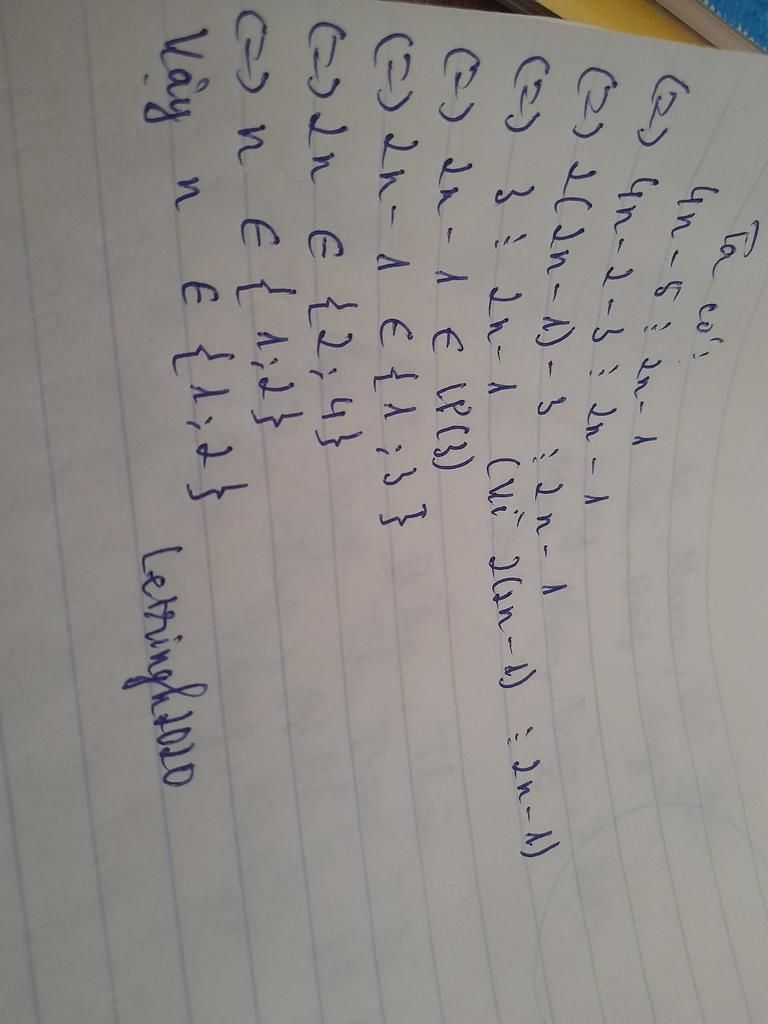 Ta có:
4n - 5 ⋮ 2n - 1
(=) 4n - 2 - 3 ⋮ 2n - 1
(=) 2(2n - 1) - 3 ⋮ 2n - 1
(=) 3 ⋮ 2n - 1 (Vì 2(2n - 1) ⋮ 2n - 1)
(=) 2n - 1 ∈ Ư(3)
(=) 2n - 1 ∈ {1; 3}
(=) 2n ∈ {2; 4}
(=) n ∈ {1; 2}
Vậy n ∈ {1; 2}